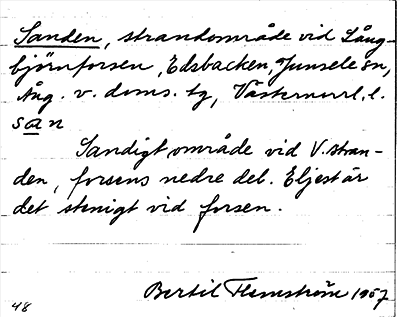 Sanden, strandområde vid Lång-
björnforsen, Edsbacken, Junsele sn,
Ång. v. doms. tg, Västernorrl. l.
san
Sandigt område vid V. stran-
den, forsens nedre del. Eljest är
det stenigt vid forsen.
Bertil Flemström 1967
48